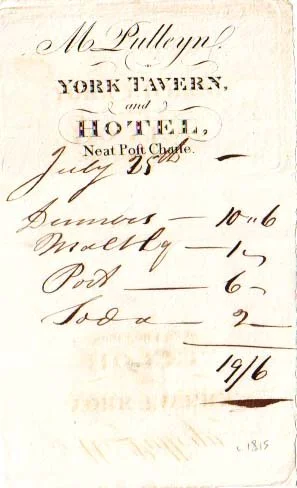 M Pulleyn.
YORK TAVERN,
and
HOTEL,
Neat Post Chaise.
July 25th —
Dinners — 10 " 6
Malt Lq — 1 "
Port — 6 "
Soda — 2
19/6
c. 1815